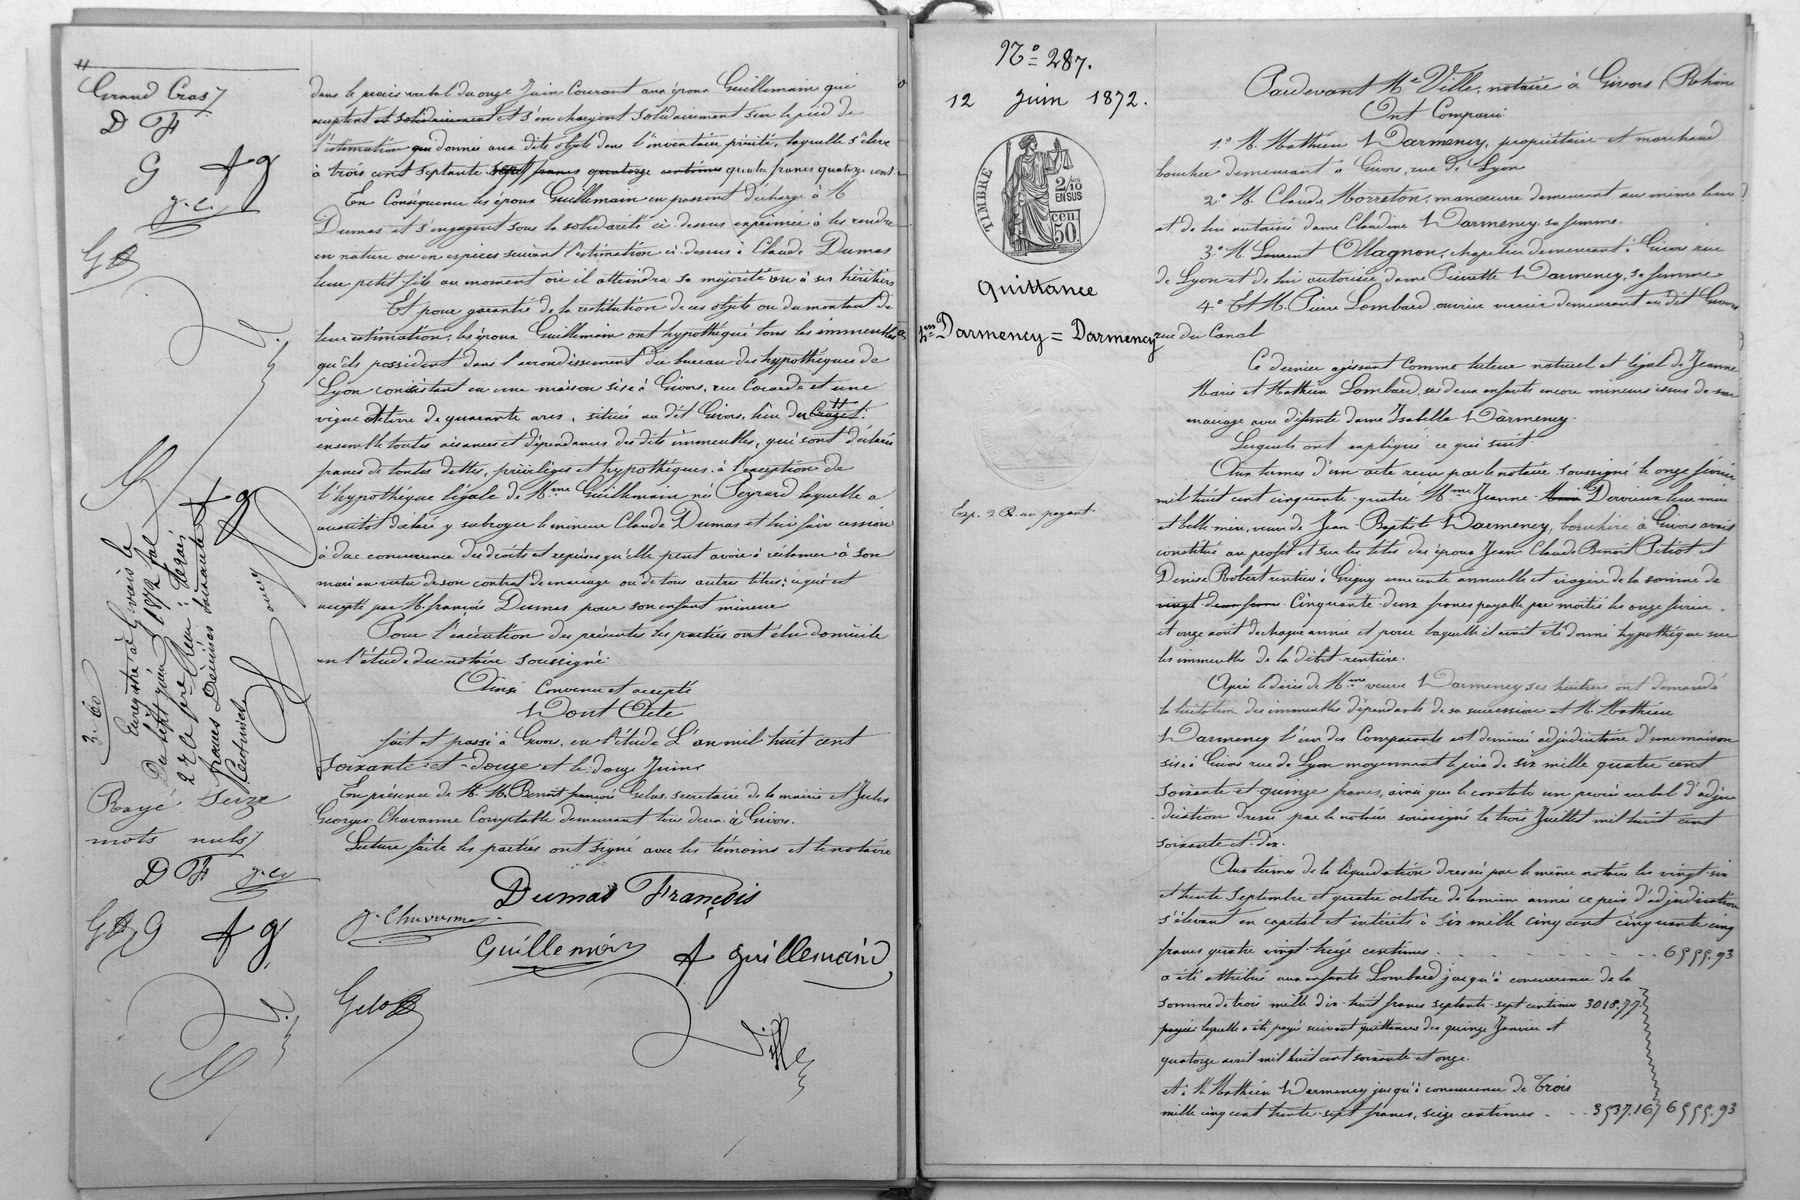 Grand Cras
D F
G A g
dans le procès verbal du onze Juin Courant aux époux Guillemain qui
acceptent et solidairement et s'en chargent solidairement sur le pied de
l'estimation qui donnée aux dits objets dans l'inventaire précité, laquelle s'élève
à trois cent septante sept francs quatorze centimes quatre francs quatorze cent
En Conséquence les époux Guillemain en passent décharge à M
Dumas et s'engagent sous la solidarité ci-dessus exprimée à les rendre
en nature ou en espèces suivant l'estimation ci-dessus à Claude Dumas
leur petit fils au moment où il atteindra sa majorité ou à ses héritiers
Et pour garantie de la restitution de ces objets ou du montant de
leur estimation, les époux Guillemain ont hypothéqué tous les immeubles
qu'ils possèdent dans l'arrondissement du bureau des hypothèques de
Lyon consistant en une maison sise à Givors, rue et une
vigne de quarante ares, située au dit Givors, lieu du
ensemble toutes aisances et dépendances des dits immeubles, qui sont déclarés
francs de toutes dettes, privilèges et hypothèques à l'exception de
l'hypothèque légale de Mme Guillemain née Peyrard laquelle a
aussitôt déclaré y subroger le mineur Claude Dumas et lui faire cession
à due concurrence des droits et reprises qu'elle peut avoir à réclamer à son
mari en vertu de son contrat de mariage ou de tous autres titres; ce qui est
accepté par M. françois Dumas pour son enfant mineur
Pour l'exécution des présentes les parties ont élu domicile
en l'étude du notaire soussigné.
Ainsi Convenu et accepté
Dont Acte
fait et passé à Givors, en l'étude L'an mil huit cent
soixante-et-douze et le douze Juin
En présence de M. M. Benoit françois Gelas, secrétaire de la mairie et Jules
Georges Chavanne Comptable demeurant tous deux à Givors.
Lecture faite les parties ont signé avec les témoins et le notaire
3.60
Enregistré à Givors le
juin 1872 fol
francs Décimes soixante
centimes
Rayé Seize
mots nuls
D F
A g
Dumas François
J. Chavanne
Guillemin A guillemain
Gelas
Ville
No 287.
12 Juin 1872.
TIMBRE
2/10
EN SUS
cen.
50
Quittance
Darmency = Darmency
Exp. 2 R. au payant
Pardevant Me Ville, notaire à Givors (Rhône
Ont Comparu
1o M. Mathieu Darmency, propriétaire et marchand
boucher demeurant à Givors, rue de Lyon
2o M. Claude Morreton, manœuvre demeurant au même lieu
et de lui autorisée dame Claudine Darmency, sa femme.
3o M. Laurent Magnon, chapelier demeurant à Givors rue
de Lyon et de lui autorisée dame Pierrette Darmency, sa femme
4o Et M. Pierre Lombard ouvrier verrier demeurant au dit Givors
rue du Canal.
Ce dernier agissant comme tuteur naturel et légal de Jeanne
Marie et Mathieu Lombard, ses deux enfants encore mineurs issus de son
mariage avec défunte dame Isabelle Darmency.
Lesquels ont expliqué ce qui suit
Aux termes d'un acte reçu par le notaire soussigné le onze février
mil huit cent cinquante-quatre Mme Jeanne Marie Dervieux leur mère
et belle mère, veuve de Jean-Baptiste Darmency, bouchère à Givors avait
constitué au profit et sur les têtes des époux Jean Claude Benoit Petiot et
Denise Robert rentiers à Grigny une rente annuelle et viagère de la somme de
vingt deux francs Cinquante deux francs payable par moitié les onze février
et onze août de chaque année et pour laquelle il avait été donné hypothèque sur
les immeubles de la débit-rentière.
Après le décès de Mme veuve Darmency ses héritiers ont demandé
la licitation des immeubles dépendants de sa succession et M. Mathieu
Darmency l'un des Comparants est devenu adjudicataire d'une maison
sise à Givors rue de Lyon moyennant le prix de six mille quatre cent
soixante et quinze francs, ainsi que le constate un procès verbal d'adju-
dication dressé par le notaire soussigné le trois Juillet mil huit cent
soixante et dix.
Aux termes de la liquidation dressée par le même notaire les vingt six
et trente Septembre et quatre octobre de la même année ce prix d'adjudication
s'élevant en capital et intérêts à six mille cinq cent cinquante cinq
francs quatre vingt-treize centimes . . . . . . . . 6555.93
a été attribué aux enfants Lombard jusqu'à concurrence de la
somme de trois mille dix-huit francs septante-sept centimes 3018.77
payée laquelle a été payée suivant quittances des quinze Janvier et
quatorze avril mil huit cent soixante et onze.
et à M Mathieu Darmency jusqu'à concurrence de Trois
mille cinq cent trente-sept francs, seize centimes . . . 3537.16 6555.93